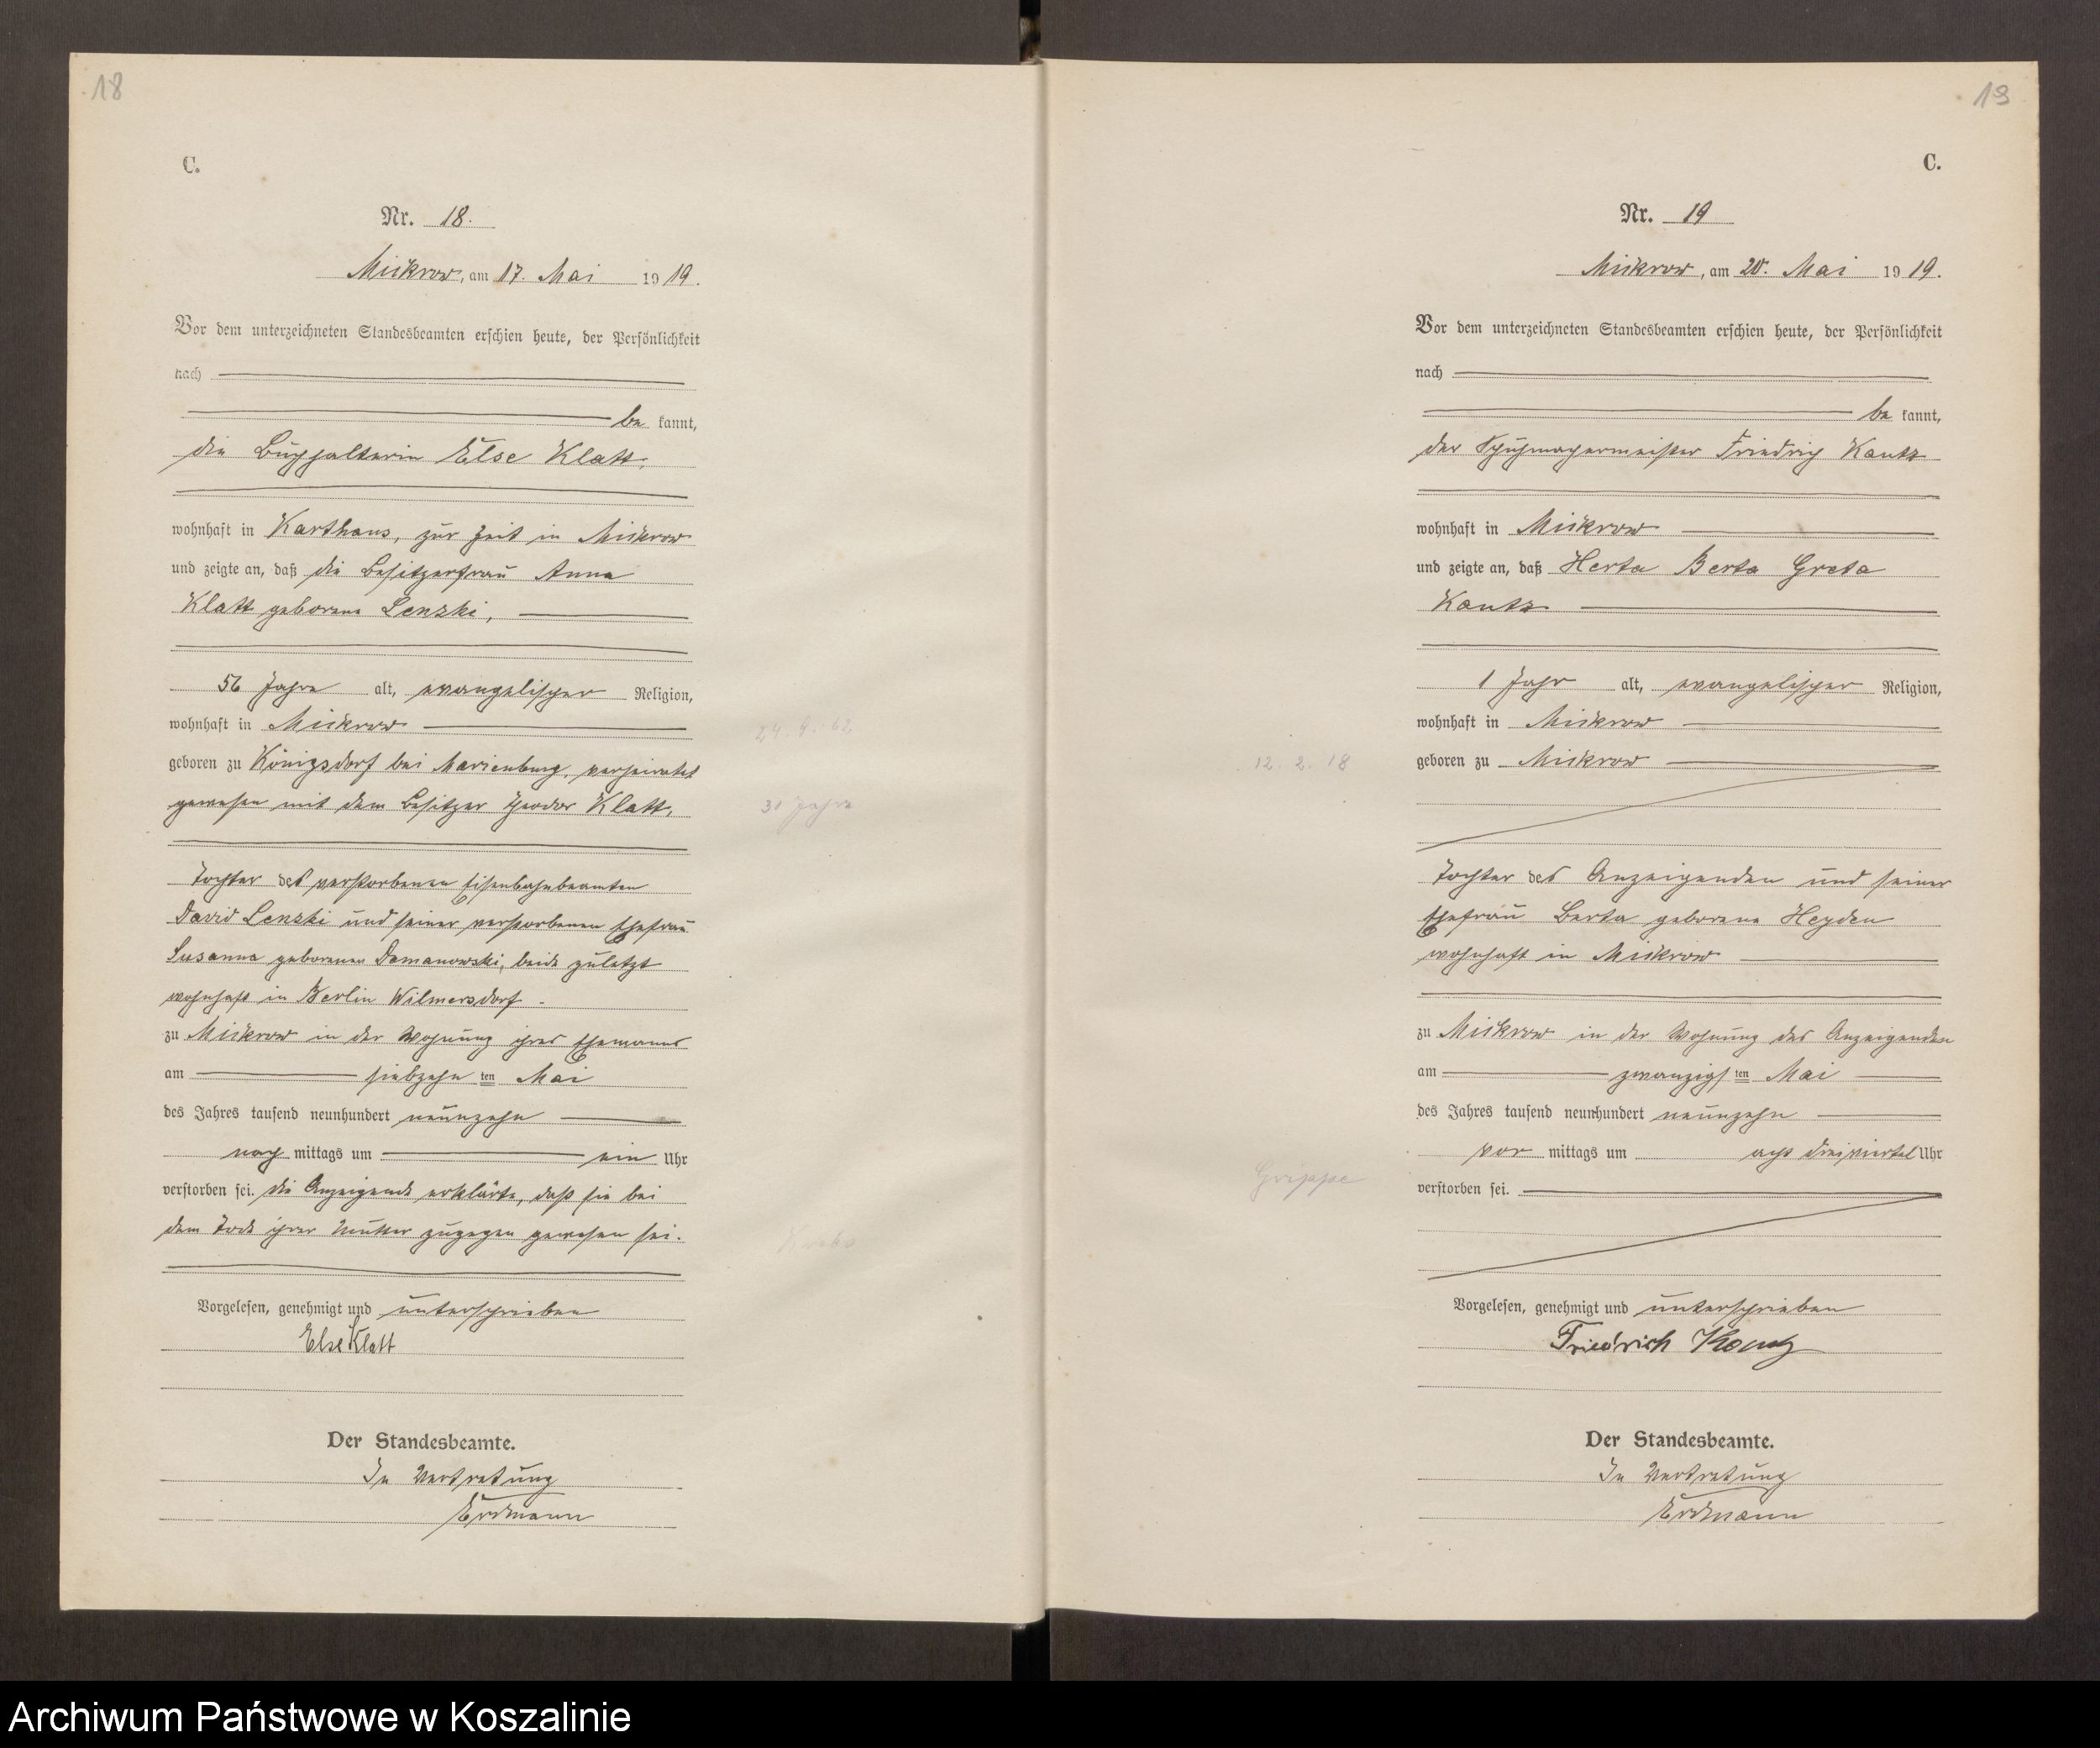 18
C.
Nr. 18.
Mickrow, am 17. Mai 1919.
Vor dem unterzeichneten Standesbeamten erschien heute, der Persönlichkeit
nach
be kannt,
die Buchhalterin Else Klatt,
wohnhaft in Karthaus, zur Zeit in Mickrow
und zeigte an, daß die Besitzerfrau Anna
Klatt geborene Lenski,
56 Jahre alt, evangelischer Religion,
wohnhaft in Mickrow
24. 9. 62
geboren zu Königsdorf bei Marienburg, verheiratet
gewesen mit dem Besitzer Theodor Klatt,
30 Jahre
Tochter des verstorbenen Eisenbahnbeamten
David Lenski und seiner verstorbenen Ehefrau
Susanna geborenen Damanowski, beide zuletzt
wohnhaft in Berlin Wilmersdorf.
zu Mickrow in der Wohnung ihres Ehemanns
am siebzehn ten Mai
des Jahres tausend neunhundert neunzehn
nach mittags um ein Uhr
verstorben sei. Die Anzeigende erklärte, daß sie bei
dem Tode ihrer Mutter zugegen gewesen sei.
Krebs
Vorgelesen, genehmigt und unterschrieben
Else Klatt
Der Standesbeamte.
In Vertretung
Erdmann
19
C.
Nr. 19
Mickrow, am 20. Mai 1919.
Vor dem unterzeichneten Standesbeamten erschien heute, der Persönlichkeit
nach
be kannt,
der Schuhmachermeister Friedrich Kautz
wohnhaft in Mickrow
und zeigte an, daß Herta Berta Greta
Kautz
1 Jahr alt, evangelischer Religion,
wohnhaft in Mickrow
12. 2. 18
geboren zu Mickrow
Tochter des Anzeigenden und seiner
Ehefrau Berta geborene Heyden
wohnhaft in Mickrow
zu Mickrow in der Wohnung des Anzeigenden
am zwanzigs ten Mai
des Jahres tausend neunhundert neunzehn
vor mittags um acht dreiviertel Uhr
Grippe
verstorben sei.
Vorgelesen, genehmigt und unterschrieben
Friedrich Kautz
Der Standesbeamte.
In Vertretung
Erdmann
Archiwum Państwowe w Koszalinie